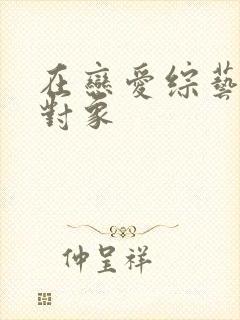 在戀愛綜藝
對象
仲呈祥